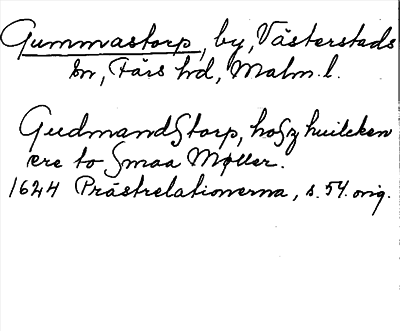 Gummastorp, by, Västerstads
sn, Färs hd, Malm. l.
GudmandStorp, hoSz huilcken
ere to Smaa Møller.
1624 Prästrelationerna, s. 54. orig.